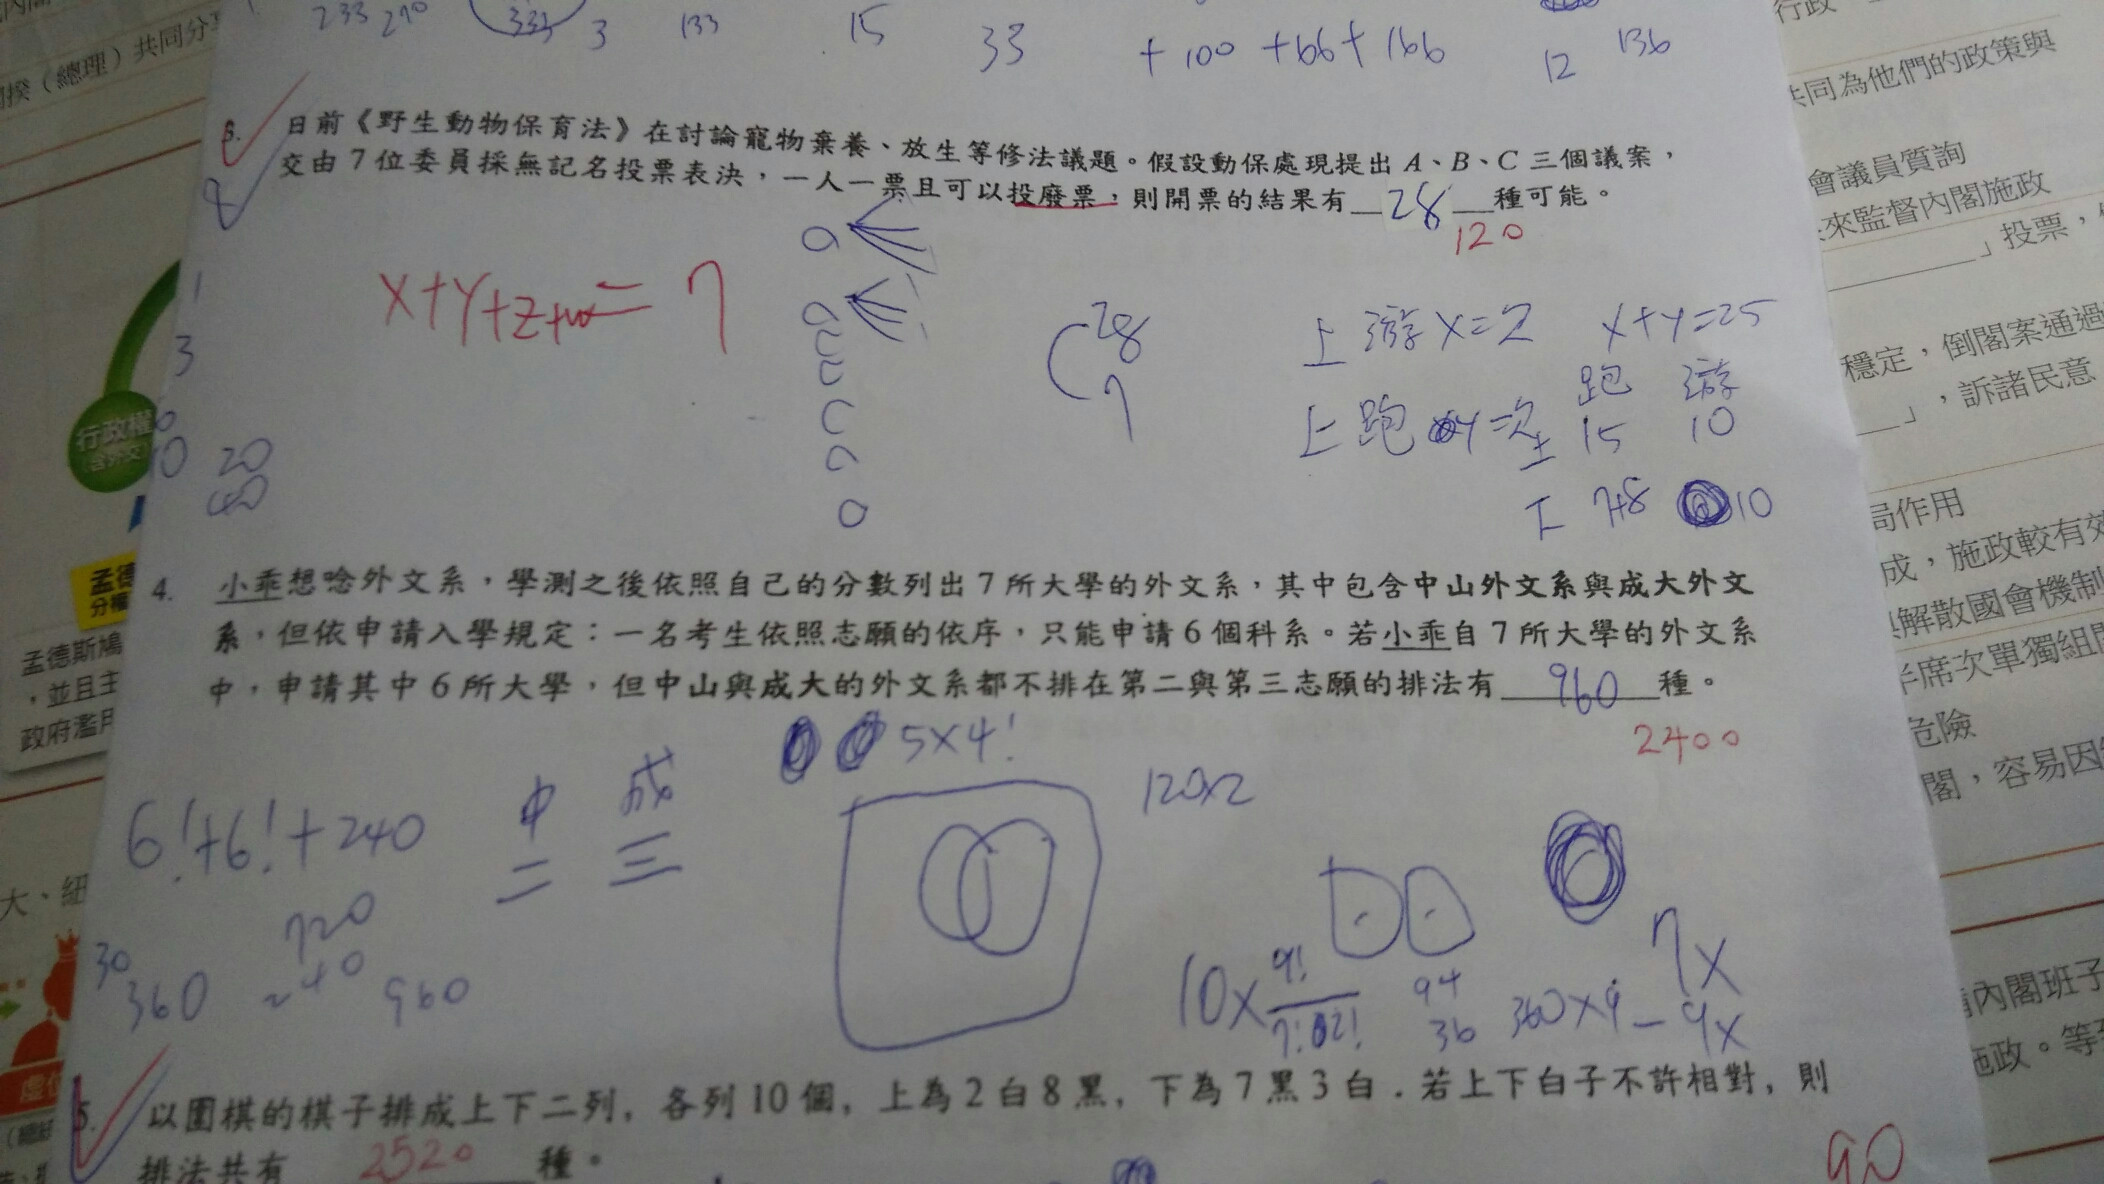 233 210 333 3 133 15 33 + 100 + 66 + 166 12 136
日前《野生動物保育法》在討論寵物棄養、放生等修法議題。假設動保處現提出 A、B、C 三個議案，
交由 7 位委員採無記名投票表決，一人一票且可以投廢票，則開票的結果有 28 種可能。
120
X+Y+Z+w=7
C 28 7
上游X=2 X+Y=25
跑 游
上跑Y=次 上 15 10
下 7+8 10
1
3
20
40
4. 小乖想唸外文系，學測之後依照自己的分數列出 7 所大學的外文系，其中包含中山外文系與成大外文
系，但依申請入學規定：一名考生依照志願的依序，只能申請 6 個科系。若小乖自 7 所大學的外文系
中，申請其中 6 所大學，但中山與成大的外文系都不排在第二與第三志願的排法有 960 種。
2400
5×4!
120×2
6!+6!+240
中 成
二 三
720
240
960
30
360
10× 9! 7!2!
94
36
360×9-
7×
9×
5. 以圍棋的棋子排成上下二列, 各列 10 個, 上為 2 白 8 黑, 下為 7 黑 3 白. 若上下白子不許相對, 則
排法共有 2520 種。
90
揆（總理）共同分
行政權
孟德
分權
孟德斯鳩
，並且主
政府濫用
大、紐
虛位
行政、
共同為他們的政策與
會議員質詢
來監督內閣施政
」投票，
穩定，倒閣案通過
」，訴諸民意
局作用
成，施政較有效
解散國會機制
席次單獨組
危險
閣，容易因
內閣班子
施政。等